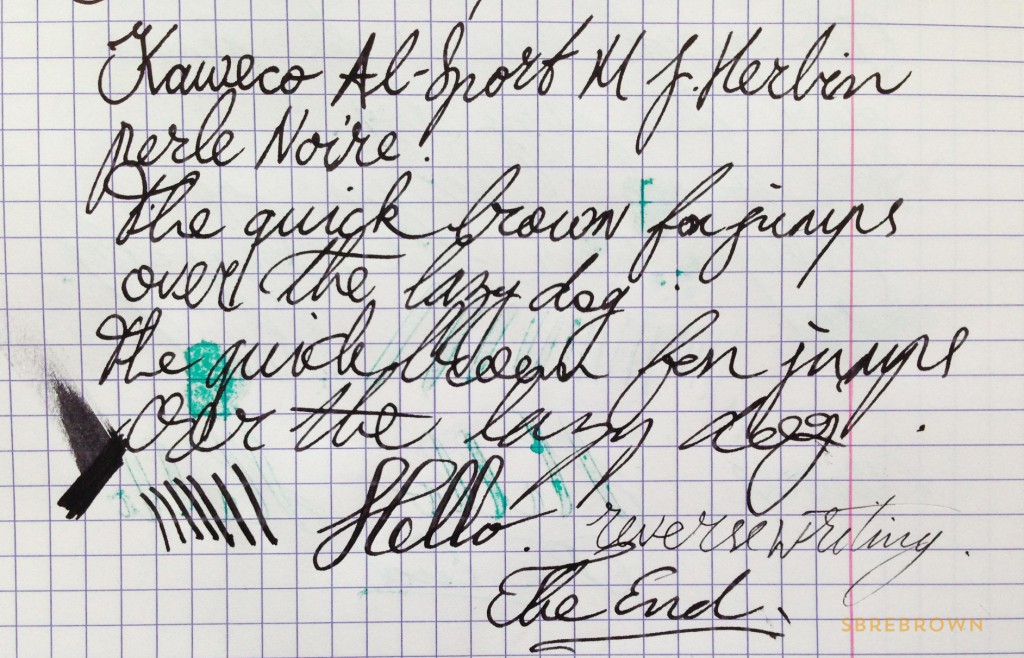 Kaweco Al-Sport M J.Herbin
perle Noire.
The quick brown fox jumps
over the lazy dog.
The quick brown fox jumps
over the lazy dog.
Hello. reverse writing.
The End.
SBREBROWN